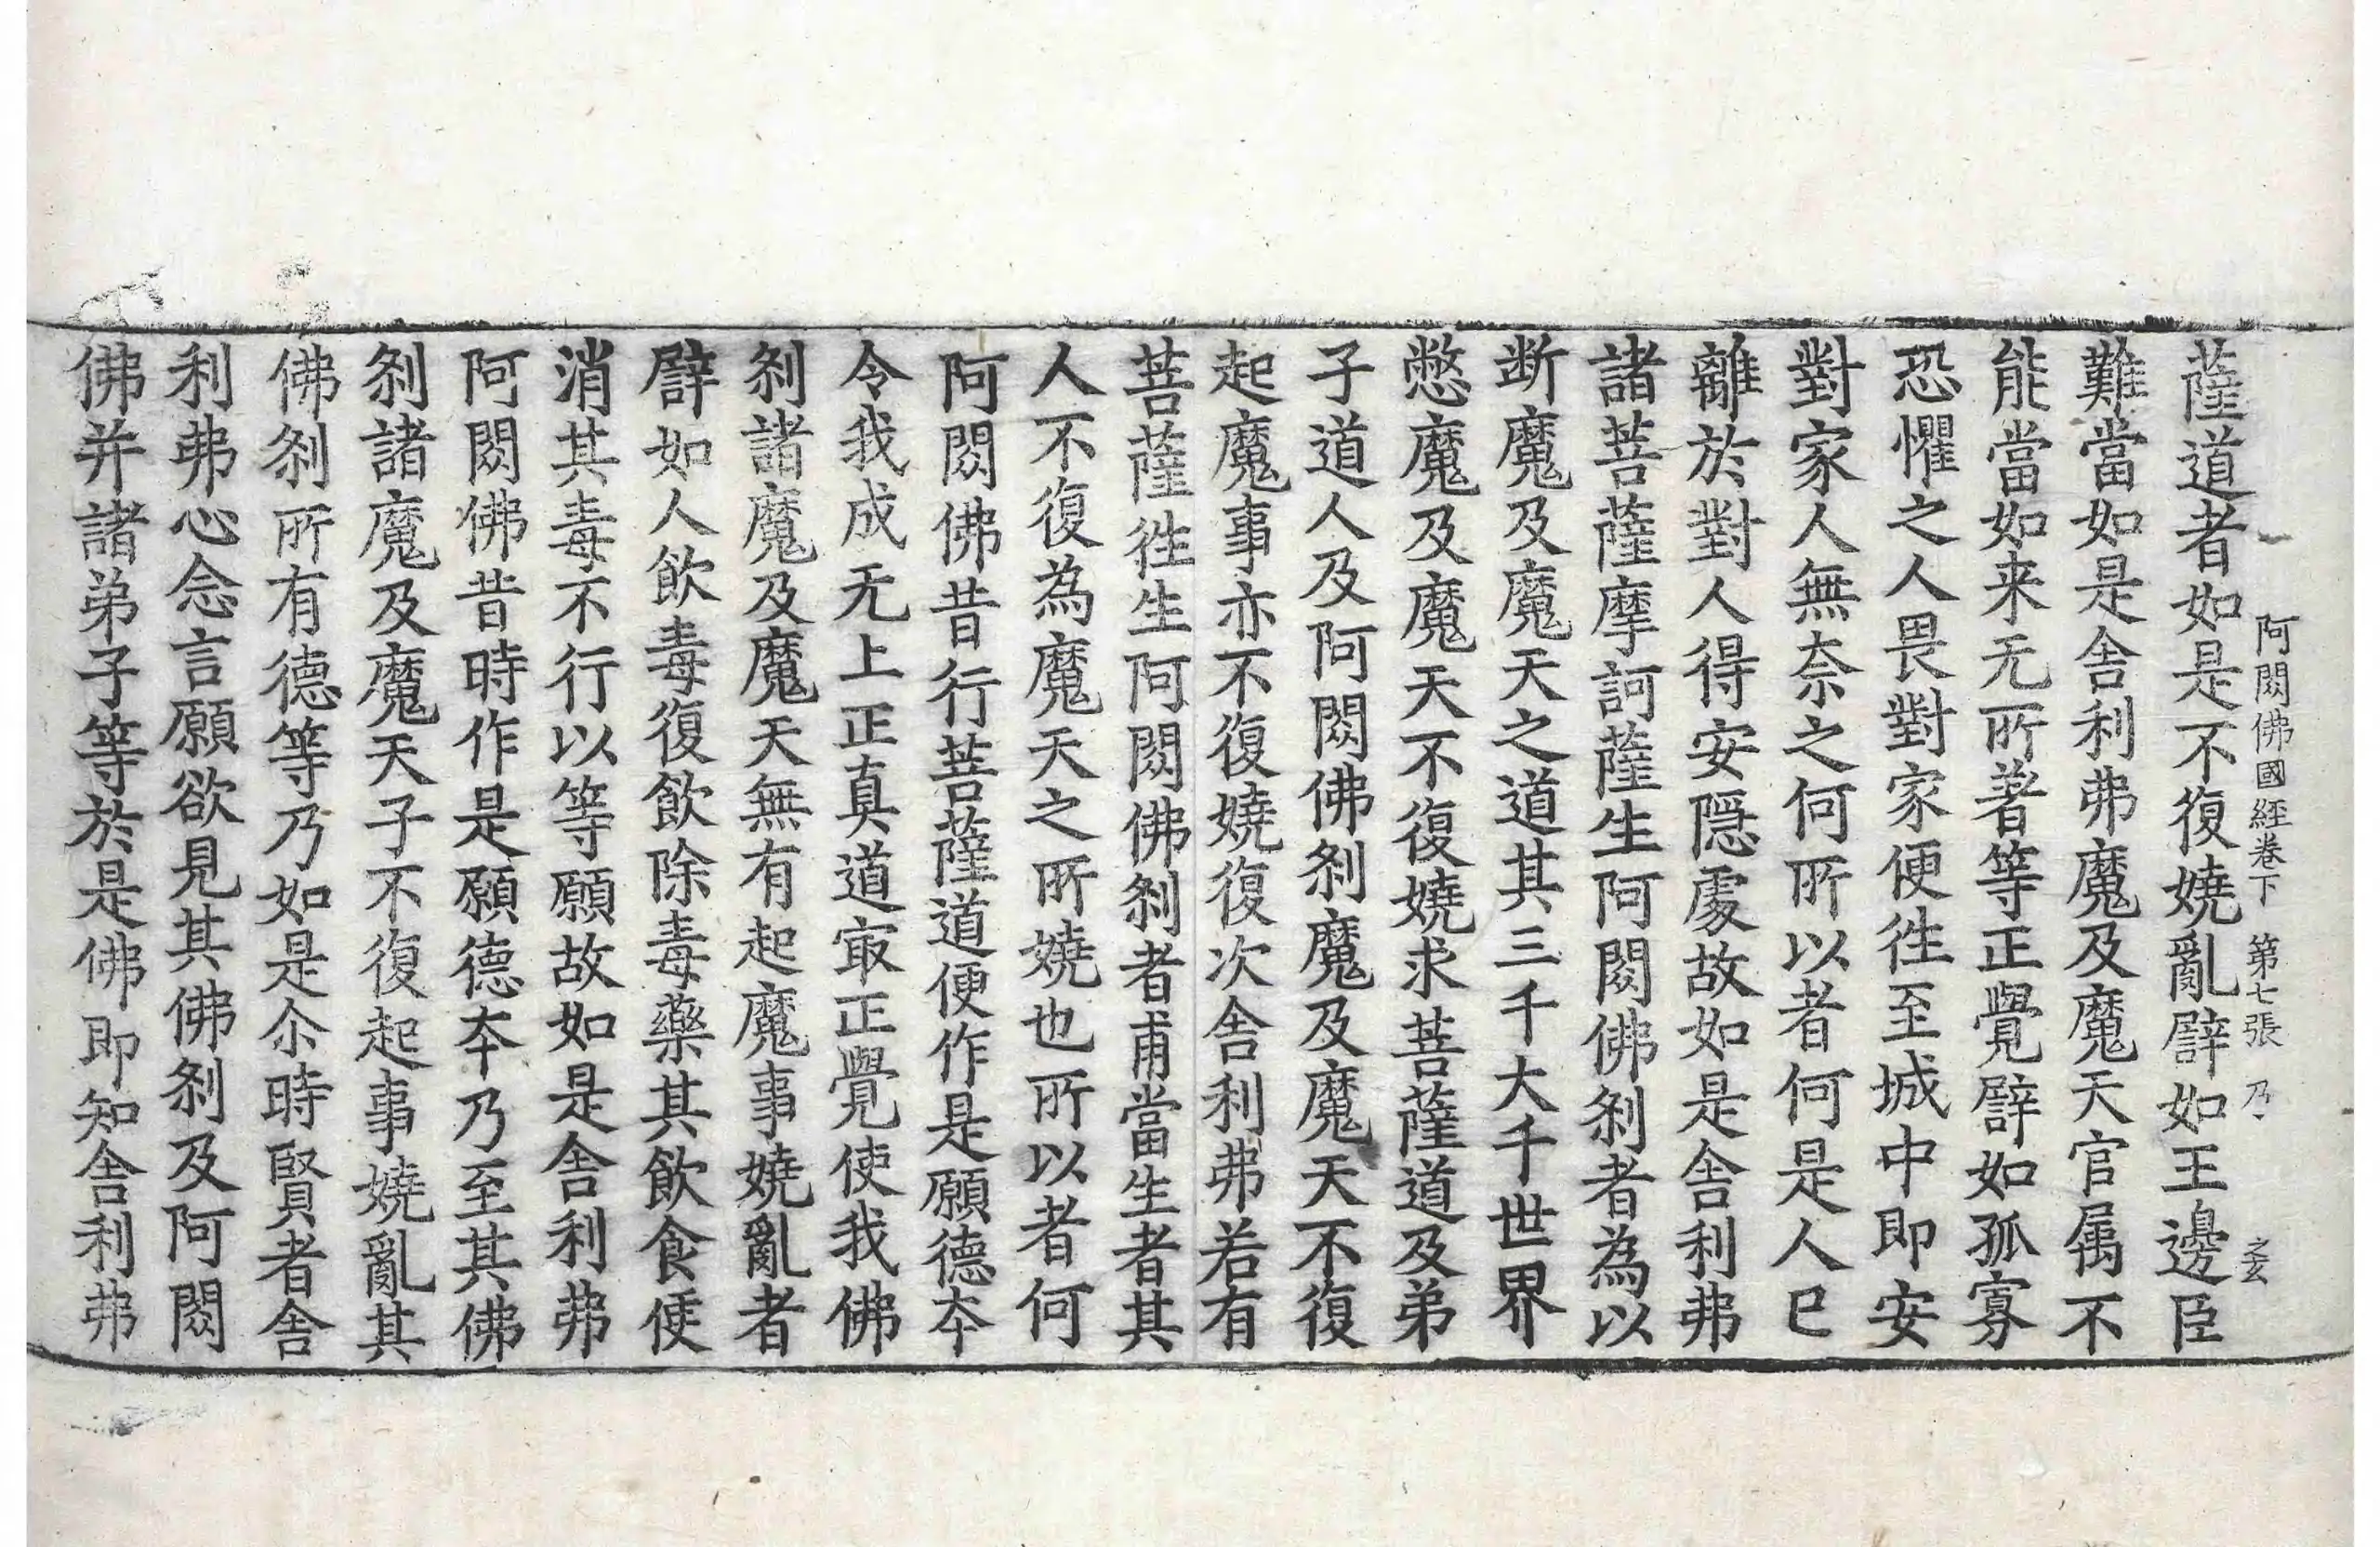 阿閦佛國經卷下 第七張 乃 之玄
薩道者如是不復嬈亂譬如王邊臣
難當如是舍利弗魔及魔天官属不
能當如来无所著等正覺譬如孤寡
恐懼之人畏對家便徃至城中即安
對家人無奈之何所以者何是人已
離於對人得安隱處故如是舍利弗
諸菩薩摩訶薩生阿閦佛刹者為以
断魔及魔天之道其三千大千世界
憋魔及魔天不復嬈求菩薩道及弟
子道人及阿閦佛刹魔及魔天不復
起魔事亦不復嬈復次舍利弗若有
菩薩徃生阿閦佛刹者甫當生者其
人不復為魔天之所嬈也所以者何
阿閦佛昔行菩薩道便作是願德夲
令我成无上正真道㝡正覺使我佛
刹諸魔及魔天無有起魔事嬈亂者
譬如人飲毒復飲除毒藥其飲食便
消其毒不行以等願故如是舍利弗
阿閦佛昔時作是願德夲乃至其佛
刹諸魔及魔天子不復起事嬈亂其
佛刹所有德等乃如是尒時賢者舍
利弗心念言願欲見其佛刹及阿閦
佛并諸弟子等於是佛即知舍利弗